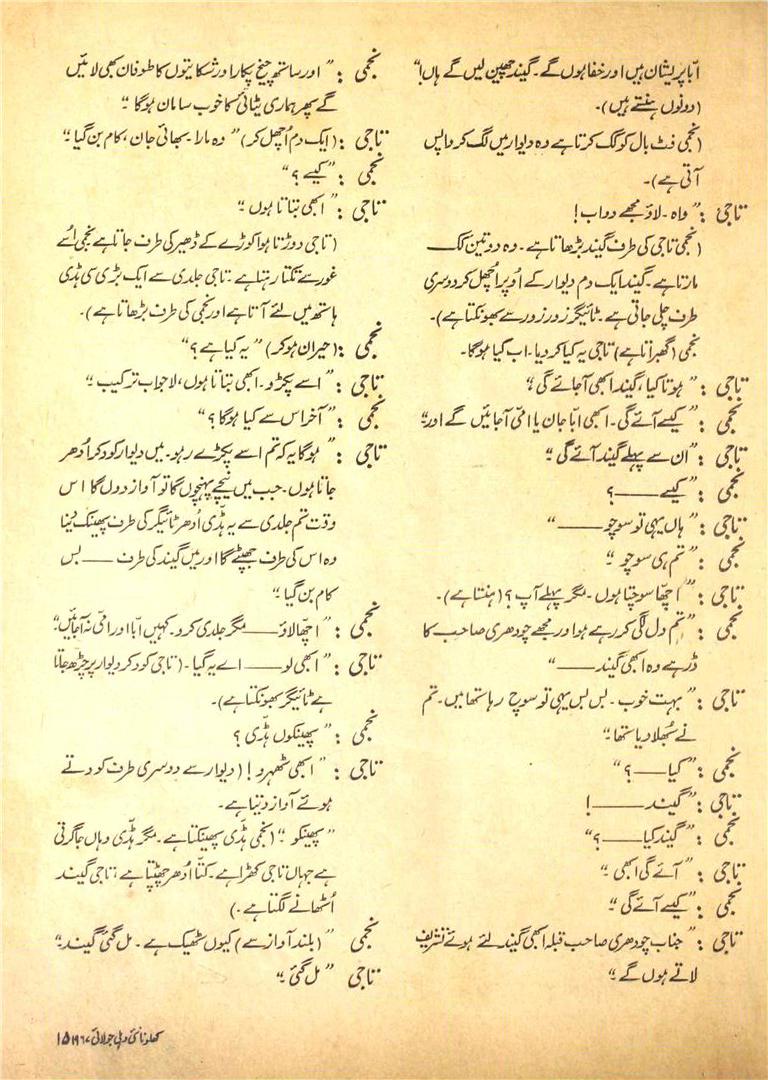 ابّا پریشان ہیں اور خفا ہوں گے۔ گیند چھین لیں گے ہاں!"
(دونوں ہنستے ہیں)۔
(نجمی فٹ بال کو کک کرتا ہے وہ دیوار میں لگ کر واپس
آتی ہے)۔
تاجی : " واہ۔ لاؤ مجھے دو اب!
(نجمی تاجی کی طرف گیند بڑھاتا ہے۔ وہ دو تین کک
مارتا ہے۔ گیند ایک دم دیوار کے اُوپر اُچھل کر دوسری
طرف چلی جاتی ہے۔ ٹائیگر زور زور سے بھونکتا ہے)۔
نجمی (گھبراتا ہے) تاجی یہ کیا کر دیا۔ اب کیا ہوگا۔
تاجی : " ہوتا کیا، گیند ابھی آجائے گی "
نجمی : " کیسے آئے گی۔ ابھی ابّا جان یا امّی آجائیں گے اور"
تاجی : " ان سے پہلے گیند آئے گی "
نجمی : " کیسے ـــــ ؟
تاجی : " ہاں یہی تو سوچو ـــــ "
نجمی : " تم ہی سوچو "
تاجی : " اچھّا سوچتا ہوں۔ مگر پہلے آپ؟ (ہنستا ہے)۔
نجمی : " تم دل لگی کر رہے ہو اور مجھے چودھری صاحب کا
ڈر ہے وہ ابھی گیند ـــــ "
تاجی : " بہت خوب۔ بس بس یہی تو سوچ رہا تھا میں۔ تم
نے بُھلا دیا تھا "
نجمی : " کیا ـــــ ؟ "
تاجی : " گیند ـــــ !
نجمی : " گیند کیا ـــــ ؟ "
تاجی : " آئے گی ابھی "
نجمی : " کیسے آئے گی "
تاجی : " جناب چودھری صاحب قبلہ ابھی گیند لئے ہوئے تشریف
لاتے ہوں گے "
نجمی : " اور ساتھ چیخ پکار اور شکایتوں کا طوفان بھی لائیں
گے پھر ہماری پٹائی کا خوب سامان ہوگا "
تاجی : (ایک دم اُچھل کر) " وہ مارا۔ بھائی جان، کام بن گیا "
نجمی : " کیسے ؟ "
تاجی : " ابھی بتاتا ہوں "
(تاجی دوڑتا ہوا کوڑے کے ڈھیر کی طرف جاتا ہے نجمی اُسے
غور سے تکتا رہتا ہے۔ تاجی جلدی سے ایک بڑی سی ہڈّی
ہاتھ میں لئے آتا ہے اور نجمی کی طرف بڑھاتا ہے)۔
نجمی : (حیران ہو کر) " یہ کیا ہے ؟ "
تاجی : " اسے پکڑو۔ ابھی بتاتا ہوں، لاجواب ترکیب "
نجمی : " آخر اس سے کیا ہوگا ؟ "
تاجی : " ہوگا یہ کہ تم اسے پکڑے رہو۔ میں دیوار کود کر اُدھر
جاتا ہوں۔ جب میں نیچے پہنچوں گا تو آواز دوں گا اس
وقت تم جلدی سے یہ ہڈّی اُدھر ٹائیگر کی طرف پھینک دینا
وہ اس کی طرف جھپٹے گا اور میں گیند کی طرف ـــــ بس
کام بن گیا "
نجمی : " اچھّا لاؤ ـــــ مگر جلدی کرو۔ کہیں ابّا اور امّی نہ آجائیں"
تاجی : " ابھی لو ـــــ اے یہ گیا۔ (تاجی کود کر دیوار پر چڑھ جاتا
ہے ٹائیگر بھونکتا ہے)۔
نجمی : " پھینکوں ہڈّی ؟
تاجی : " ابھی ٹھہرو! (دیوار سے دوسری طرف کودتے
ہوئے آواز دیتا ہے۔
" پھینکو " (نجمی ہڈّی پھینکتا ہے۔ مگر ہڈّی وہاں جا گرتی
ہے جہاں تاجی کھڑا ہے۔ کتّا اُدھر جھپٹتا ہے، تاجی گیند
اُٹھانے لگتا ہے۔)
نجمی " (بلند آواز سے) کیوں ٹھیک ہے۔ مل گئی گیند "
تاجی " مل گئی "
کھلونا نئی دہلی جولائی ۱۹۶۷ ۱۵